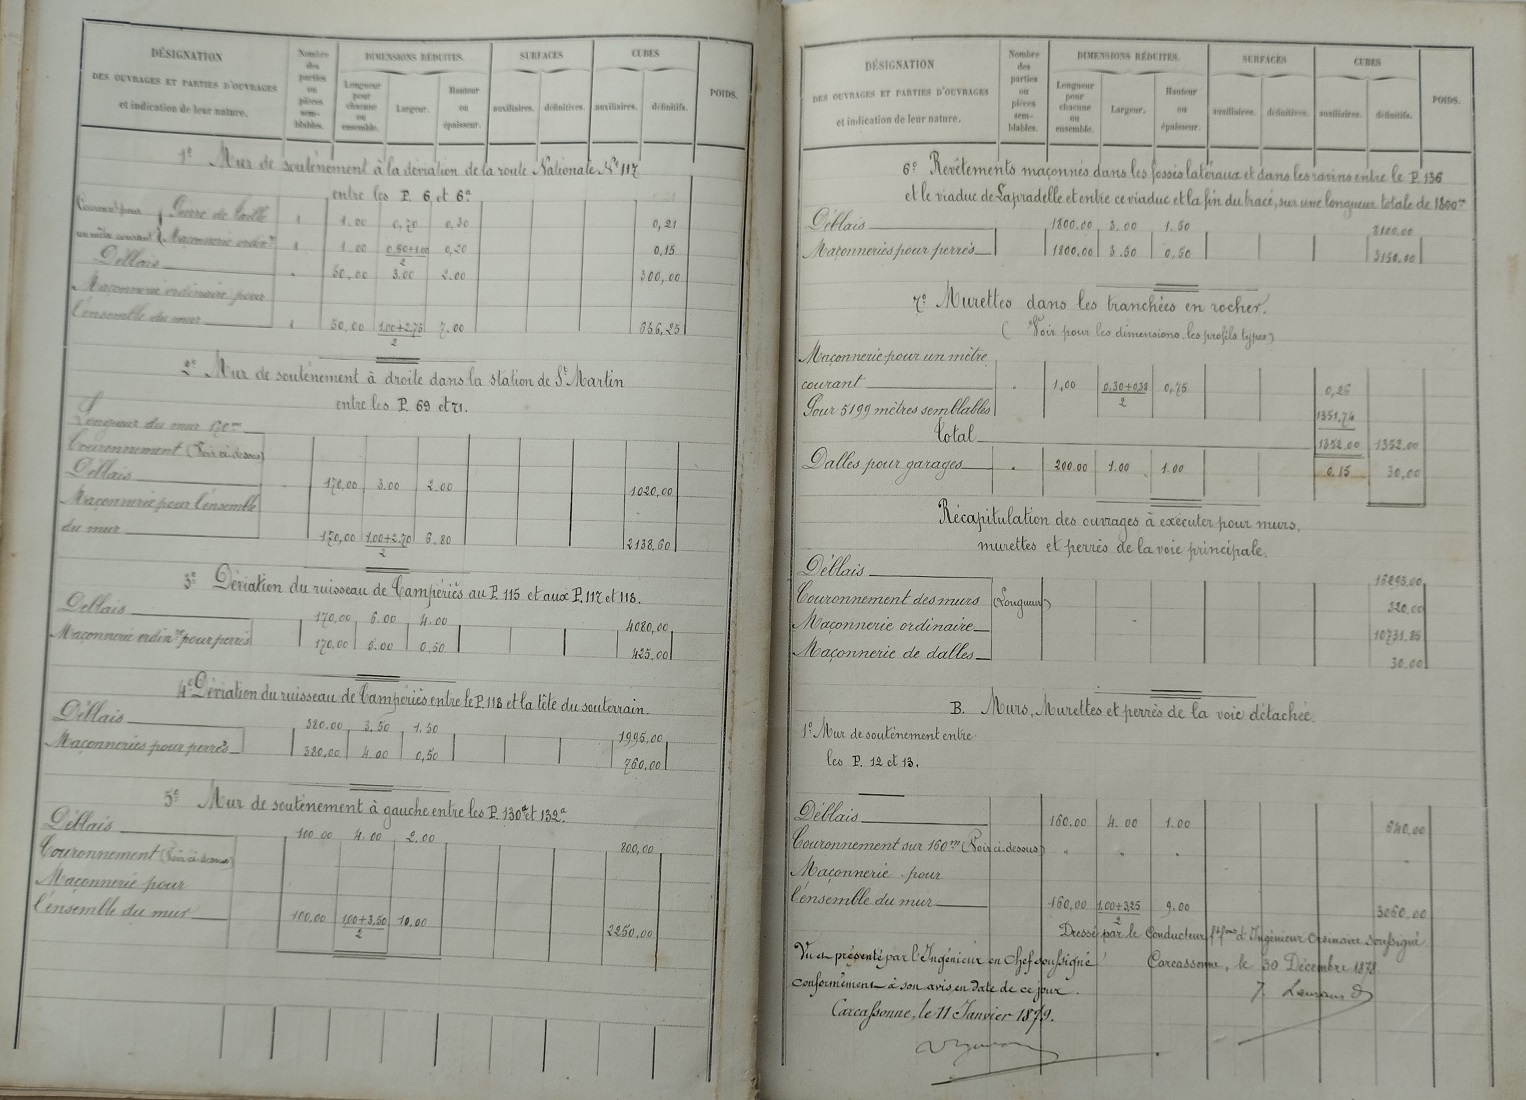 DÉSIGNATION
DES OUVRAGES ET PARTIES D'OUVRAGES
et indication de leur nature.
Nombre des parties ou pièces sem- blables.
DIMENSIONS RÉDUITES.
Longueur pour chacune ou ensemble.
Largeur.
Hauteur ou épaisseur.
SURFACES
auxiliaires.
définitives.
CUBES
auxiliaires.
définitifs.
POIDS.
1º Mur de soutènement à la déviation de la route Nationale Nº 117
entre les P. 6 et 6ª
Couronnt pour Pierre de taille 1.00 0,70 0,30 0,21
un mètre courant Maçonnerie ordinre 1.00 0.50+1.00/2 0,20 0,15
Déblais 50,00 3.00 2.00 300,00
Maçonnerie ordinaire pour
l'ensemble du mur 50,00 1.00+2.75/2 7.00 656,25
2º Mur de soutènement à droite dans la station de St Martin
entre les P. 69 et 71.
Longueur du mur 170m
Couronnement (Voir ci-dessus)
Déblais 170,00 3.00 2.00 1020,00
Maçonnerie pour l'ensemble
du mur 170,00 1.00+2.70/2 6.80 2138.60
3º Déviation du ruisseau de Campériès au P. 115 et aux P. 117 et 118.
Déblais 170,00 6.00 4.00 4080,00
Maçonnerie ordinre pour perrés 170,00 5.00 0,50 425.00
4º Déviation du ruisseau de Campériès entre le P. 118 et la tête du souterrain.
Déblais 380.00 3.50 1.50 1995.00
Maçonneries pour perrés 380,00 4.00 0,50 760,00
5º Mur de soutènement à gauche entre les P. 130ª et 132ª.
Déblais 100.00 4.00 2.00 800,00
Couronnement (Voir ci-dessus)
Maçonnerie pour
l'ensemble du mur 100.00 1.00+3.50/2 10.00 2250.00
DÉSIGNATION
DES OUVRAGES ET PARTIES D'OUVRAGES
et indication de leur nature.
Nombre des parties ou pièces sem- blables.
DIMENSIONS RÉDUITES.
Longueur pour chacune ou ensemble.
Largeur.
Hauteur ou épaisseur.
SURFACES
auxiliaires.
définitives.
CUBES
auxiliaires.
définitifs.
POIDS.
6º Revêtements maçonnés dans les fossés latéraux et dans les ravins entre le P. 136
et le viaduc de Lapradelle et entre ce viaduc et la fin du tracé, sur une longueur totale de 1800m
Déblais 1800.00 3.00 1.50 8100.00
Maçonneries pour perrés 1800.00 3.50 0,50 3150.00
7º Murettes dans les tranchées en rocher.
(Voir pour les dimensions, les profils types)
Maçonnerie pour un mètre
courant 1,00 0,30+0,38/2 0,75 0,26
Pour 5199 mètres semblables 1351,74
Total 1352.00 1352.00
Dalles pour garages 200.00 1.00 1.00 0.15 30,00
Récapitulation des ouvrages à exécuter pour murs,
murettes et perrés de la voie principale.
Déblais 16295,00
Couronnement des murs (Longueur) 320,00
Maçonnerie ordinaire 10731.85
Maçonnerie de dalles 30.00
B. Murs, Murettes et perrés de la voie détachée.
1º Mur de soutènement entre
les P. 12 et 13.
Déblais 160.00 4.00 1.00 640,00
Couronnement sur 160m (Voir ci-dessus)
Maçonnerie pour
l'ensemble du mur 160.00 1.00+3.25/2 9.00 3060,00
Dressé par le Conducteur ft fons d'Ingénieur Ordinaire soussigné
Carcassonne, le 30 Décembre 1878
Vu et présenté par l'Ingénieur en Chef soussigné
conformément à son avis en date de ce jour.
Carcassonne, le 11 Janvier 1879.